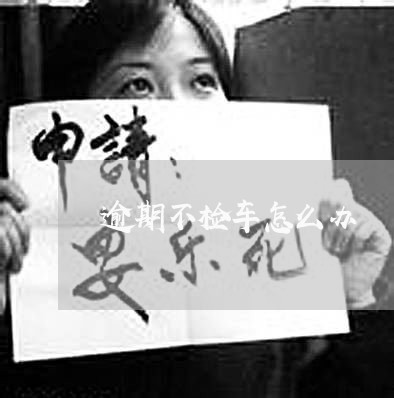 申請：
逾期不检车怎么办
安乐死